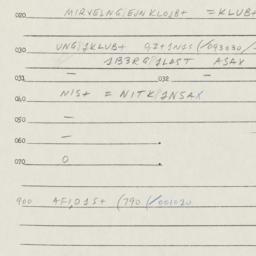 020 MIRVELNG/EJNKLOJB+ =KLUB+
030 UNG/JKLUB+ 9,2+1NSS (/093030/
JB3RG/JLAST ASAV
031 — 032 —
040 NIS+ = NITK/JNSAX
050 —
—
060
070 O
900 AFI,D1S+ (790 (/001020